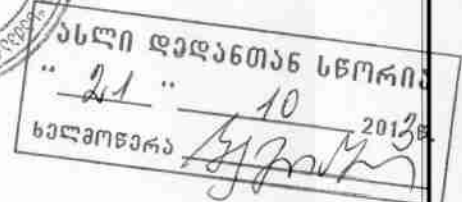 ასლი დედანთან სწორია
" 21 " 10 2013წ
ხელმოწერა